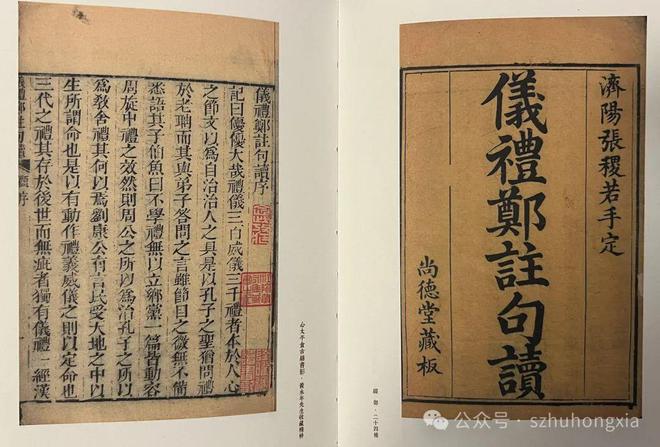 濟陽張稷若手定
儀禮鄭註句讀
尚德堂藏板
綫部·二十四種
儀禮鄭註句讀序
記曰優優大哉禮儀三百威儀三千禮者本於人心
之節文以為自治治人之具是以孔子之聖猶問禮
於老聃而其與弟子答問之言雖節目之微無不備
悉語其子伯魚曰不學禮無以立鄉黨一篇皆動容
周旋中禮之效然則周公之所以為治孔子之所以
為教舍禮其何以焉劉康公有言民受天地之中以
生所謂命也是以有動作禮義威儀之則以定命也
三代之禮其存於後世而無疵者獨有儀禮一經漢
儀禮鄭註句讀 序
心太平盦古籍書影·黄永年先生收藏精粹
公众号·szhuhongxia